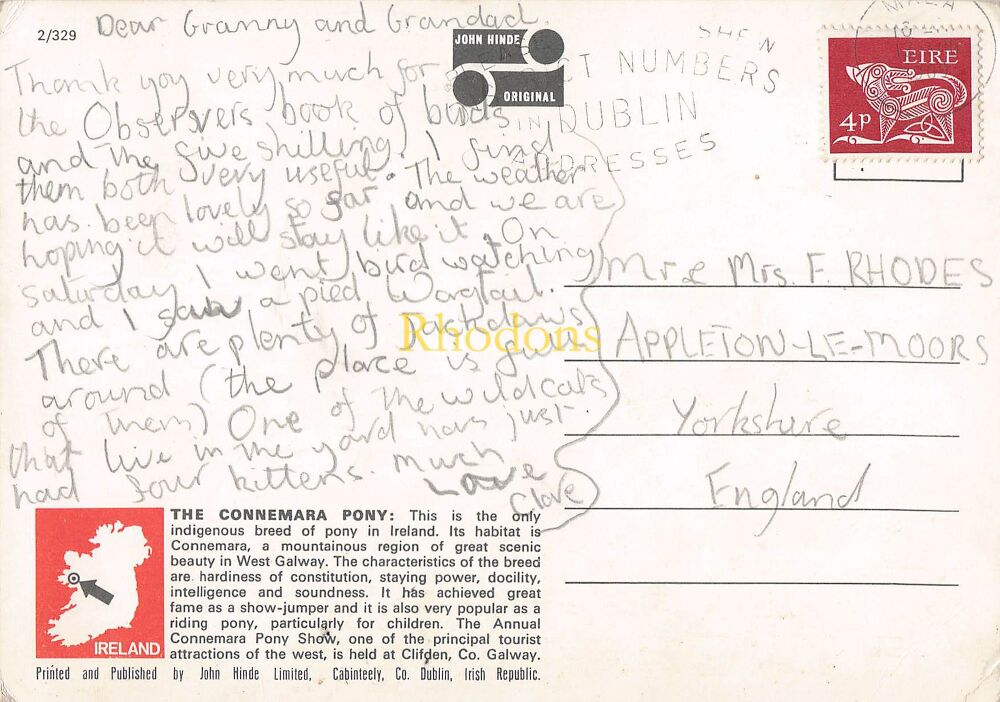 2/329
Dear Granny and Grandad.
Thank you very much for
the Observers book of birds
and the five shilling. I find
them both very useful. The weather
has been lovely so far and we are
hoping it will stay like it. On
saturday I went bird watching
and I saw a pied Wagtail.
There are plenty of Jackdaws
around (the place is full
of them) One of the wildcats
that live in the yard has just
had four kittens. much
Love
Clare
JOHN HINDE
ORIGINAL
NUMBERS
IN DUBLIN
ADDRESSES
EIRE
4p
Mr & Mrs. F. RHODES
APPLETON-LE-MOORS
Yorkshire
England
Rhodons
THE CONNEMARA PONY: This is the only
indigenous breed of pony in Ireland. Its habitat is
Connemara, a mountainous region of great scenic
beauty in West Galway. The characteristics of the breed
are hardiness of constitution, staying power, docility,
intelligence and soundness. It has achieved great
fame as a show-jumper and it is also very popular as a
riding pony, particularly for children. The Annual
Connemara Pony Show, one of the principal tourist
attractions of the west, is held at Clifden, Co. Galway.
IRELAND
Printed and Published by John Hinde Limited, Cabinteely, Co. Dublin, Irish Republic.